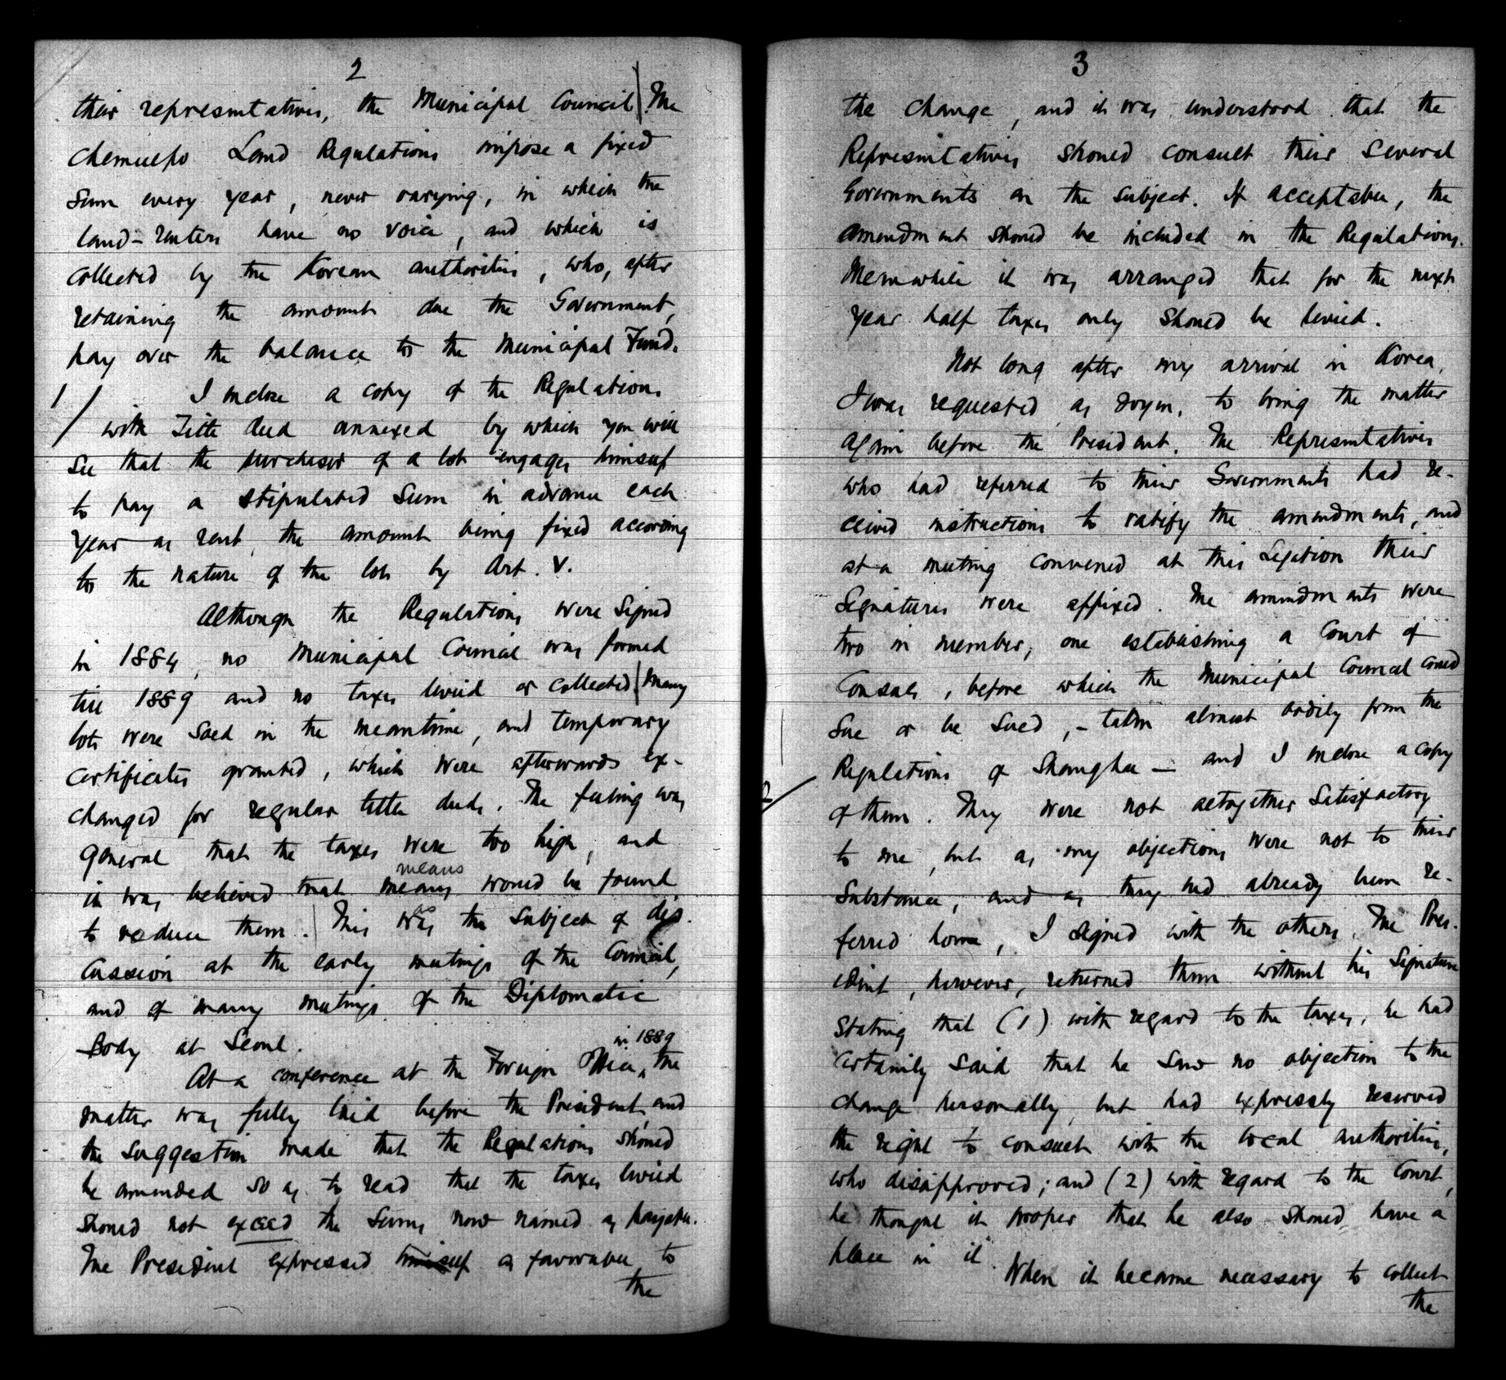 2
their representatives, the Municipal Council | The
Chemulpo Land Regulations impose a fixed
sum every year, never varying, in which the
land-renters have no voice, and which is
collected by the Korean authorities, who, after
retaining the amount due the Government,
pay over the balance to the Municipal Fund.
1/ I inclose a copy of the Regulations
with Title deed annexed by which you will
see that the purchaser of a lot engages himself
to pay a stipulated sum in advance each
year as rent, the amount being fixed according
to the nature of the lots by Art. V.
Although the Regulations were signed
in 1884, no Municipal Council was formed
till 1889 and no taxes levied or collected | Many
lots were sold in the meantime, and temporary
certificates granted, which were afterwards ex-
changed for regular title deeds. The feeling was
general that the taxes were too high, and
means
it was believed that means would be found
to reduce them. | This was the subject of dis-
cussion at the early meetings of the Council,
and of many meetings of the Diplomatic
Body at Seoul.
in 1889
At a conference at the Foreign Office, the
matter was fully laid before the President, and
the suggestion made that the Regulations should
be amended so as to read that the taxes levied
should not exceed the sums now named as payable.
The President expressed himself as favorable to
the
3
the change, and it was understood that the
Representatives should consult their several
Governments on the subject. If acceptable, the
amendment should be included in the Regulations.
Meanwhile it was arranged that for the next
year half taxes only should be levied.
Not long after my arrival in Korea,
I was requested as doyen, to bring the matter
again before the President. The Representatives
who had referred to their Governments had re-
ceived instructions to ratify the amendments, and
at a meeting convened at this Legation their
signatures were affixed. The amendments were
two in number, one establishing a Court of
Consuls, before which the Municipal Council could
sue or be sued, - taken almost bodily from the
Regulations of Shanghai — and I inclose a copy
2/ of them. They were not altogether satisfactory
to me, but as my objections were not to their
substance, and as they had already been re-
ferred home, I signed with the others. The Pres-
ident, however, returned them without his signature
stating that (1) with regard to the taxes, he had
certainly said that he saw no objection to the
change personally, but had expressly reserved
the right to consult with the local authorities,
who disapproved; and (2) with regard to the Court,
he thought it proper that he also should have a
place in it.
When it became necessary to collect
the